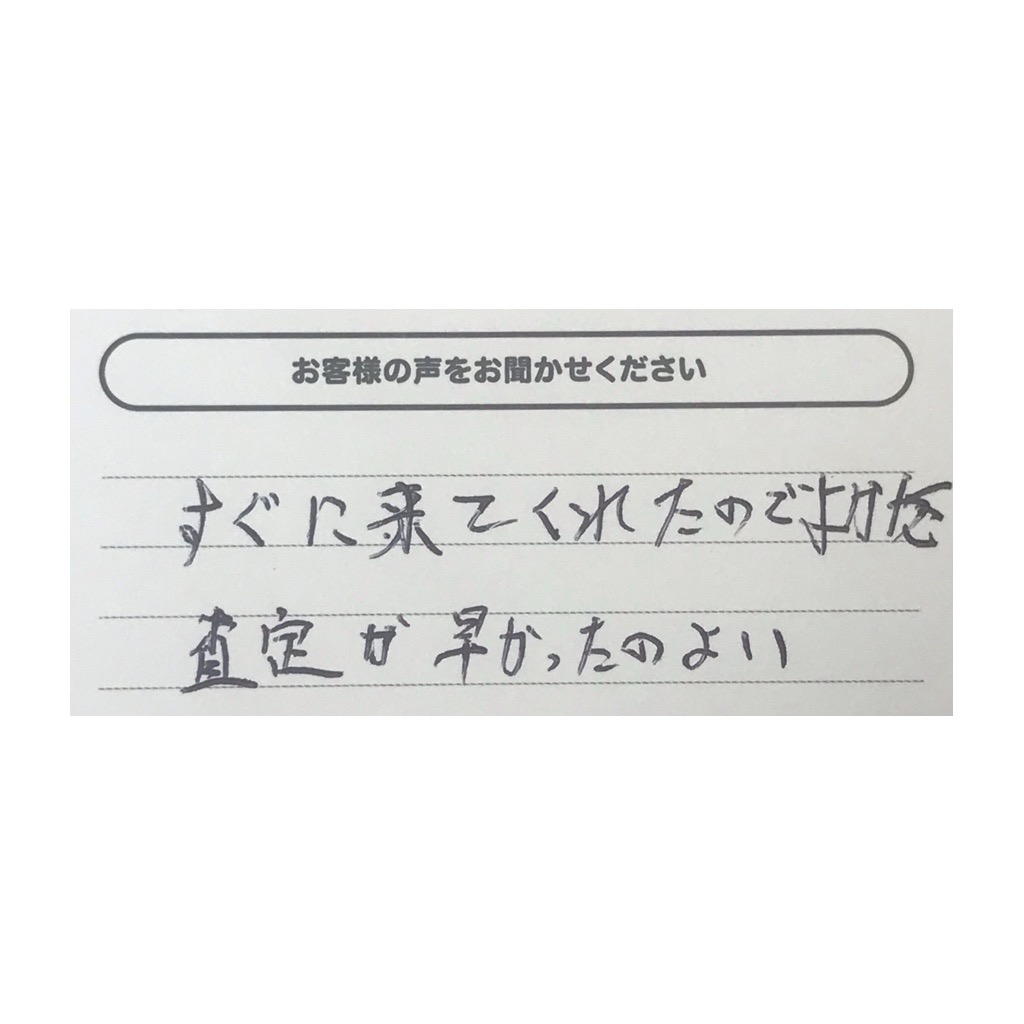 お客様の声をお聞かせください
すぐに来てくれたので
査定が早かったのよい